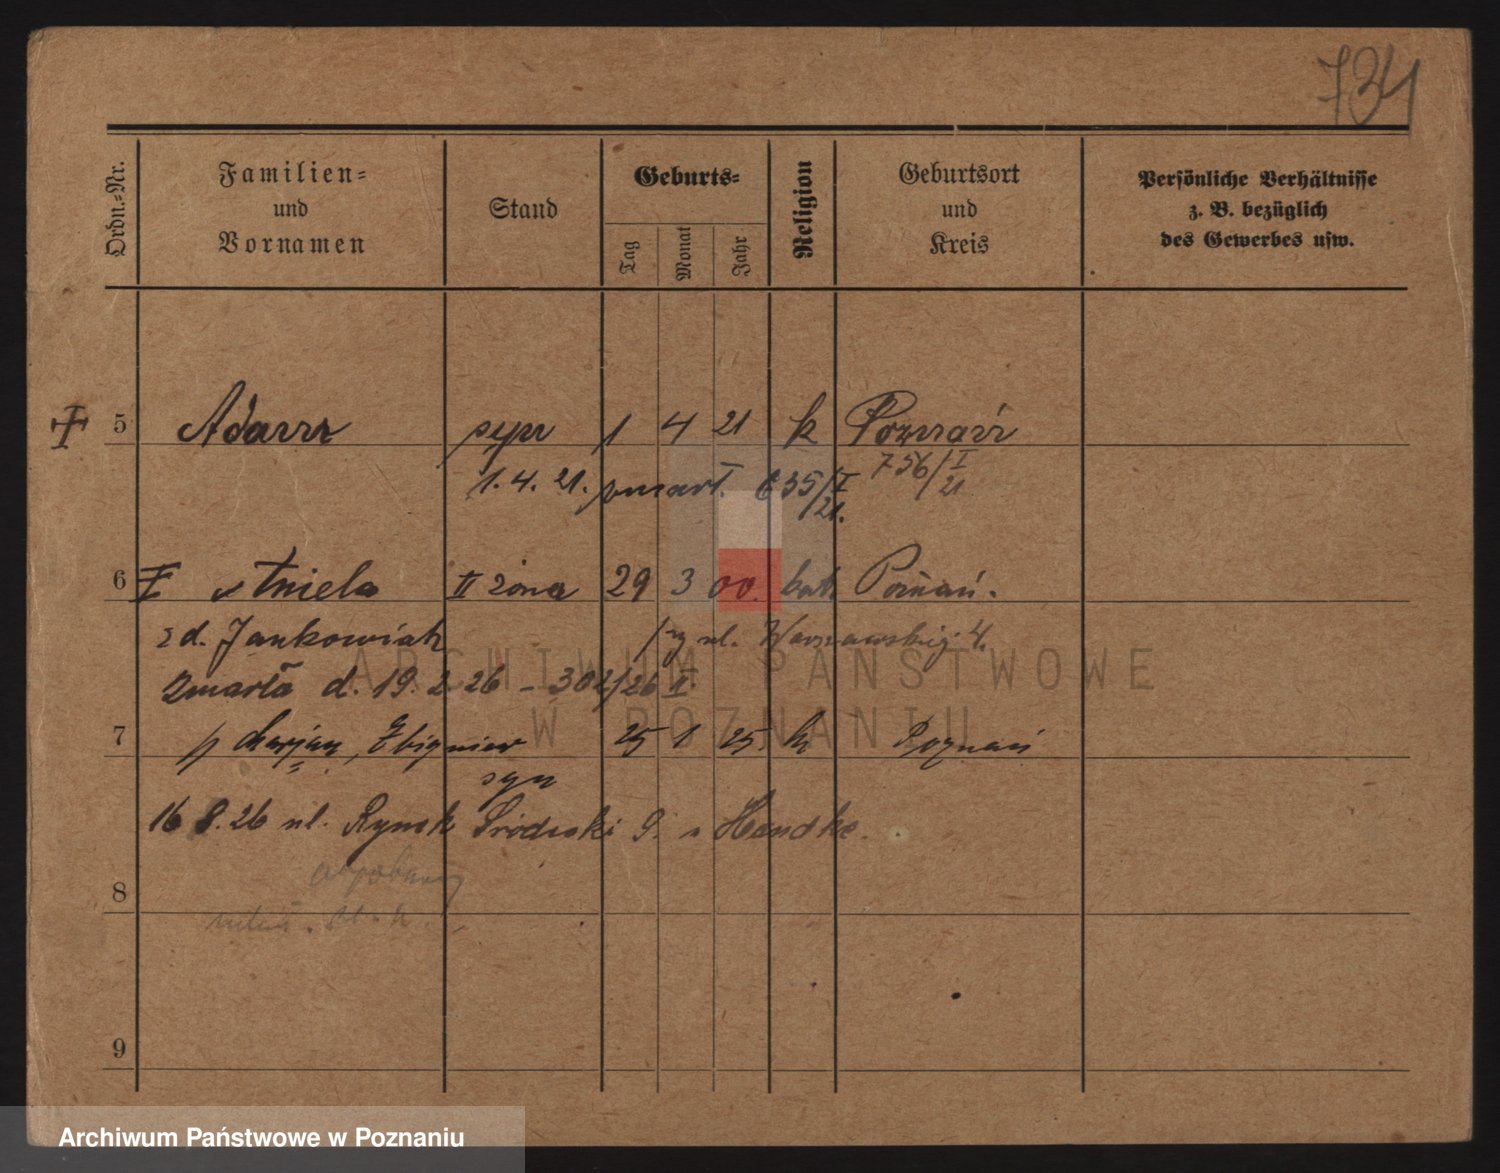 734
Ordn.-Nr.
Familien-
und
Vornamen
Stand
Geburts-
Tag
Monat
Jahr
Religion
Geburtsort
und
Kreis
Persönliche Verhältnisse
z. B. bezüglich
des Gewerbes usw.
5 Adam syn 1 4 21 k Poznań
756/I 21
1. 4. 21. zmarł. 635/I 21.
6 Aniela II żona 29 3 00. kat Poznań.
z d. Jankowiak ul. Warszawskiej 4.
Zmarła d. 19. 2. 26 - 302/26 I.
7 Marjan, Zbigniew 25 1 25. k Poznań
syn
16 8. 26 ul. Rynek Śródecki 9. u Handke.
8
9
ARCHIWUM PAŃSTWOWE
W POZNANIU
Archiwum Państwowe w Poznaniu